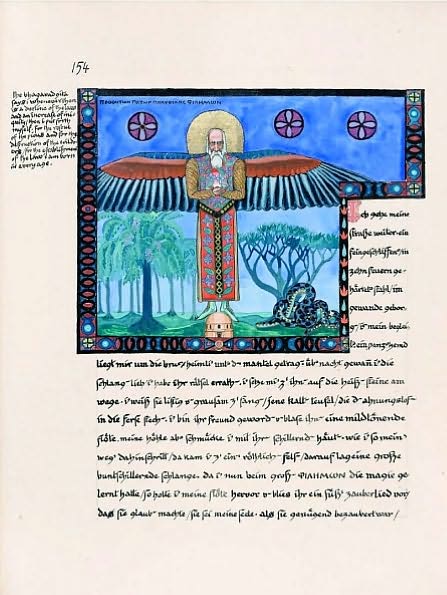 154
the bhagavadgita
says: whenever there
is a decline of the law
and an increase of ini-
quity/ then i put forth
myself. for the rescue
of the pious and for the
destruction of the evildo-
ers/ for the establishment
of the law i am born
in every age.
ΠΑΤΗΡ ΦΙΛΗΜΩΝ
Ich gehe meine
straße weiter. ein
feingeschliffen/ in
zehn feuern ge-
härtet stahl/ im
gewande gebor-
g/ is mein beglei-
t. ein panzerhemd
liegt mir um die brust/ heimli unt d mantel getrag. üb nacht gewan i die
schlang lieb/ i habe ihr räthsel errath. i seze mi z' ihr auf die heiß steine am
wege. i weiß sie listig u grausam z' fang/ jene kalt teufel/ die d ahnungslos
in die ferse stech. i bin ihr freund geword u blase ihr eine mildtönende
flöte. meine höhle ab schmücke i mit ihr schillernd häut. wie i so mein
weg dahinschritt/ da kam i z' ein röthlich fels/ darauf lag eine große
buntschillernde schlange. da i nun beim groß ΦΙΛΗΜΩΝ die magie ge
lernt hatte/ so holte i meine flöte hervor u blies ihr ein süß zauberlied vor/
das sie glaub machte/ sie sei meine seele. als sie genügend bezaubert war/